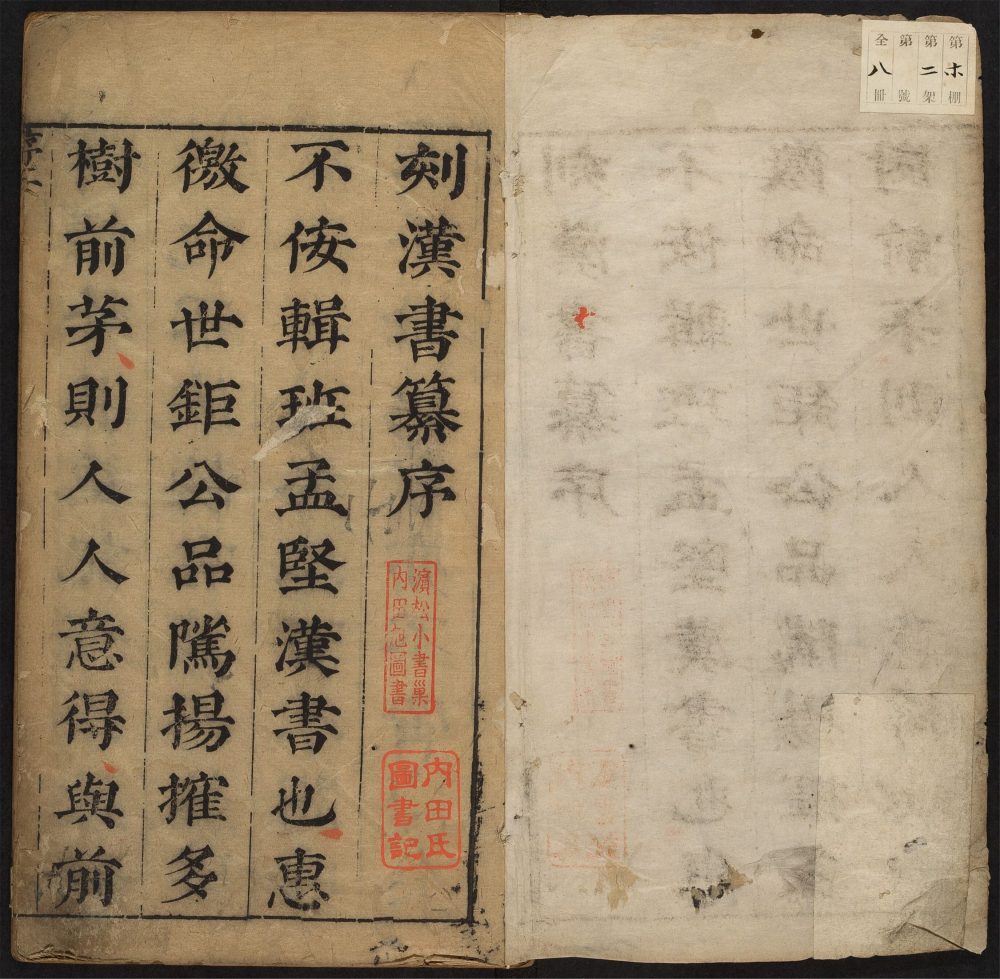 第木棚
第二架
第號
全八冊
刻漢書纂序
不佞輯班孟堅漢書也惠
徼命世鉅公品隲揚搉多
樹前茅則人人意得與前
濱松小書巢
內田旭圖書
內田氏
圖書記